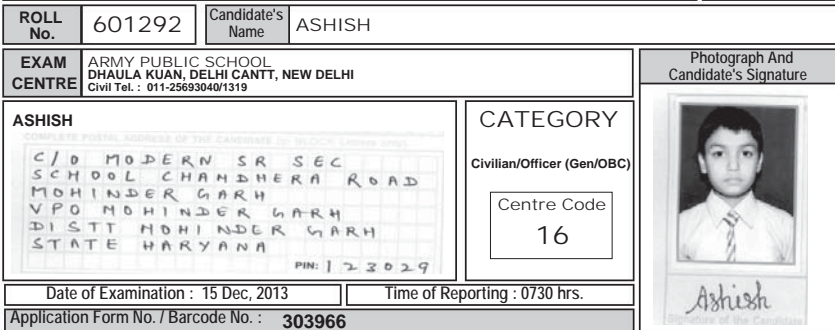 ROLL No. 601292 Candidate's Name ASHISH
EXAM CENTRE
ARMY PUBLIC SCHOOL
DHAULA KUAN, DELHI CANTT, NEW DELHI
Civil Tel. : 011-25693040/1319
Photograph And
Candidate's Signature
ASHISH
COMPLETE POSTAL ADDRESS OF THE CANDIDATE
C/O MODERN SR SEC
SCHOOL CHANDHERA ROAD
MOHINDER GARH
VPO MOHINDER GARH
DISTT MOHINDER GARH
STATE HARYANA
PIN: 123029
CATEGORY
Civilian/Officer (Gen/OBC)
Centre Code
16
Ashish
Signature of the Candidate
Date of Examination : 15 Dec, 2013 Time of Reporting : 0730 hrs.
Application Form No. / Barcode No. : 303966